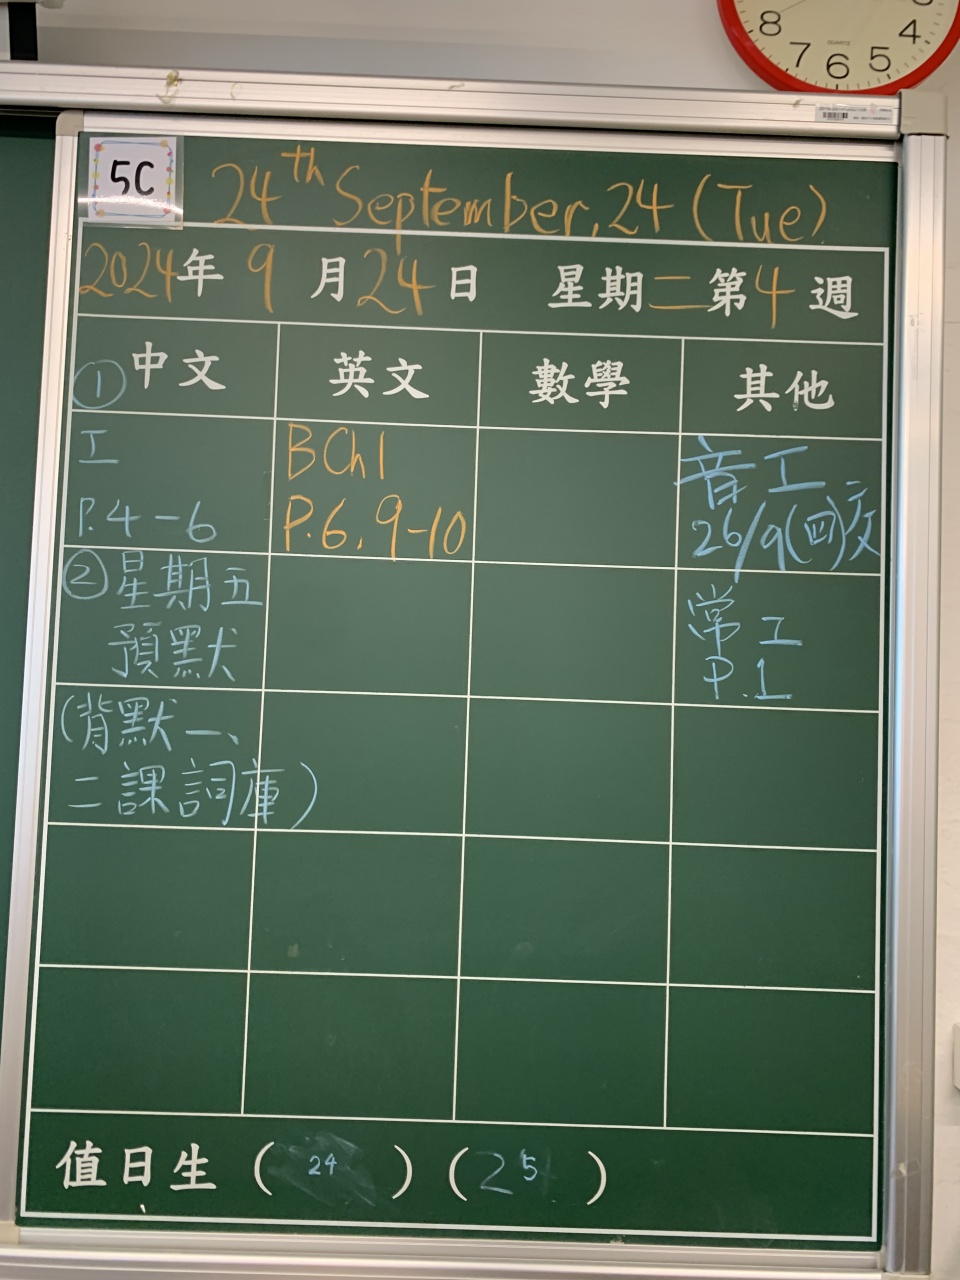 8 7 6 5 4
QUARTZ
5C
24th September, 24 (Tue)
2024年 9 月 24 日 星期二第 4 週
中文 英文 數學 其他
① 工
P.4-6
② 星期五
預默
(背默一、
二課詞庫)
B Ch1
P.6, 9-10
音工
26/9(四)交
常工
P.1
值日生 ( 24 ) ( 25 )